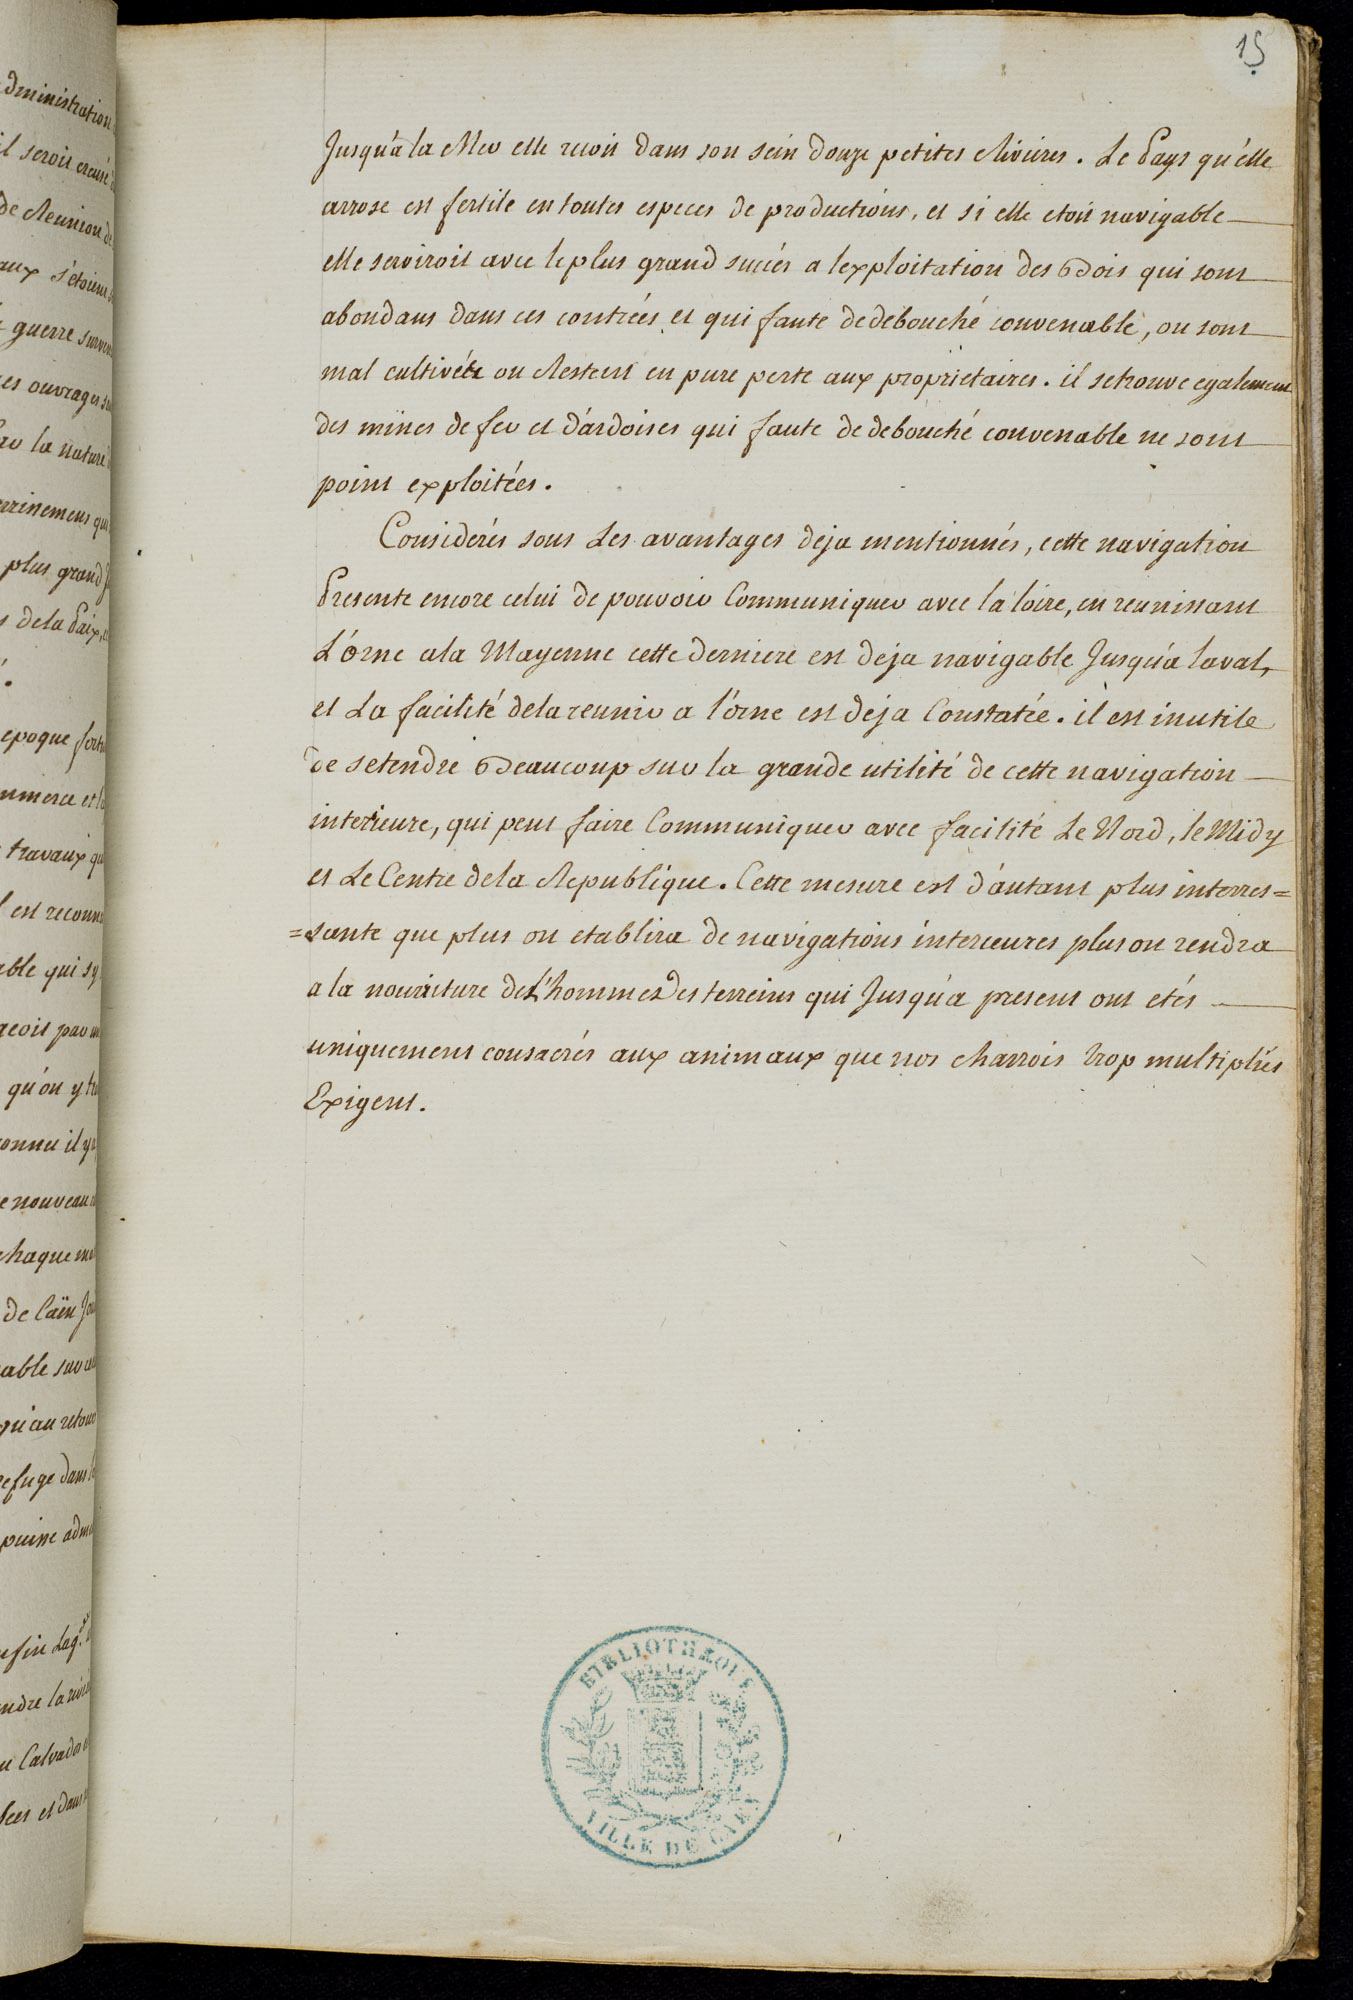 15
Jusqu'a la Mer elle recoit dans son sein douze petites Rivieres. Le Pays qu'elle
arrose est fertile en toutes especes de productions, et si elle etoit navigable
elle serviroit avec le plus grand succés a lexploitation des Bois qui sont
abondans dans ces contrées et qui faute de debouché convenable, ou sont
mal cultivés ou Restent en pure perte aux proprietaires. il se trouve egalement
des mines de fer et d'ardoises qui faute de debouché convenable ne sont
point exploitées.
Considerés sous Les avantages deja mentionnés, cette navigation
Presente encore celui de pouvoir Communiquer avec la loire, en reunissant
L'orne a la Mayenne cette derniere est deja navigable Jusqu'a laval,
et La facilité de la reunir a l'orne est deja Constatée. il est inutile
de setendre Beaucoup sur la grande utilité de cette navigation
interieure, qui peut faire Communiquer avec facilité Le Nord, le Midy
et Le Centre de la Republique. Cette mesure est d'autant plus interres=
=sante que plus on etablira de navigations interieures plus on rendra
a la nourriture de L'hommes des terreins qui Jusqu'a present ont etés
uniquement consacrés aux animaux que nos charrois trop multipliés
Exigent.
BIBLIOTHEQUE
VILLE DE CAEN
dministration
il seroit creusé
de Reunion de
aux s'etoient
guerre surven
es ouvrages
la nature
plus grand
de la Paix
epoque
mmerce et
travaux qu
est reconnu
able qui sy
qu'on y
onnu il y a
e nouveau
chaque
de Caën
able sur
qu'au retour
refuge dans
puisse
ndre la
Calvados
et dans